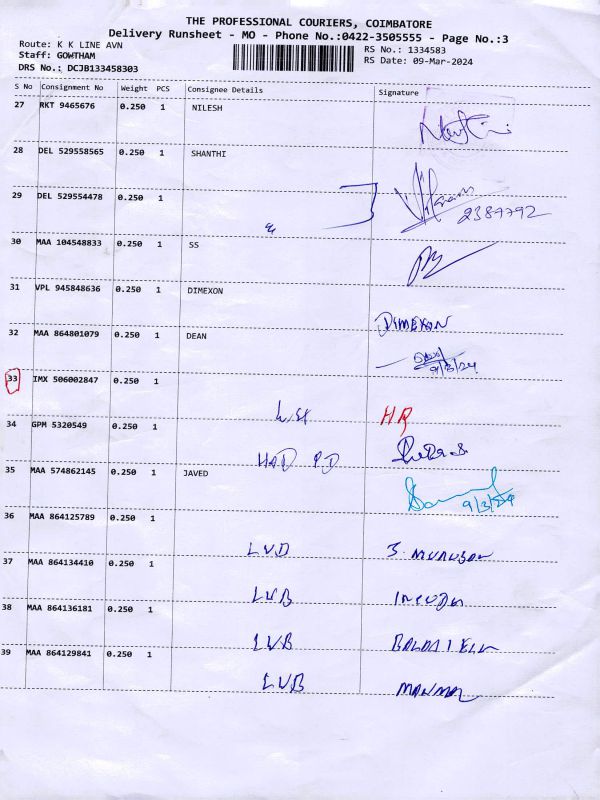 THE PROFESSIONAL COURIERS, COIMBATORE
Delivery Runsheet - MO - Phone No.:0422-3505555 - Page No.:3
Route: K K LINE AVN RS No.: 1334583
Staff: GOWTHAM RS Date: 09-Mar-2024
DRS No.: DCJB133458303
S No Consignment No Weight PCS Consignee Details Signature
27 RKT 9465676 0.250 1 NILESH
28 DEL 529558565 0.250 1 SHANTHI
29 DEL 529554478 0.250 1
2389792
30 MAA 104548833 0.250 1 SS
31 VPL 945848636 0.250 1 DIMEXON
DIMEXON
32 MAA 864801079 0.250 1 DEAN
9/3/24
33 IMX 506002847 0.250 1
HR
34 GPM 5320549 0.250 1
35 MAA 574862145 0.250 1 JAVED
9/3/24
36 MAA 864125789 0.250 1
LVB J. MURUGAN
37 MAA 864134410 0.250 1
LVB
38 MAA 864136181 0.250 1
LVB
39 MAA 864129841 0.250 1
LVB